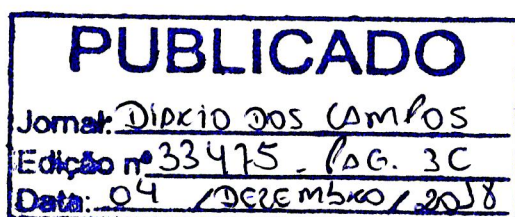 PUBLICADO
Jornal: DIÁRIO DOS CAMPOS
Edição nº 33475 - PAG. 3C
Data: 04 / DEZEMBRO / 2018